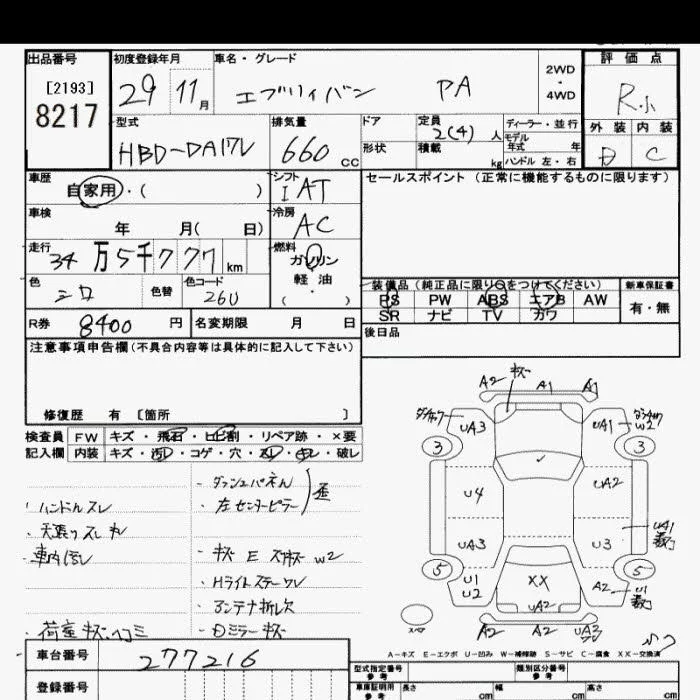 出品番号
[2193]
8217
初度登録年月
29 11月
車名・グレード
エブリィバン PA
2WD
・
4WD
評価点
R小
外装 内装
D C
型式
HBD-DA17V
排気量
660 cc
ドア
形状
定員
2(4) 人
積載
kg
ディーラー・並行
モデル
年式 年
ハンドル 左・右
車歴
自家用・( )
シフト
I AT
セールスポイント (正常に機能するものに限ります)
車検
年 月( 日)
冷房
AC
走行
34万5千777 km
燃料
ガソリン
軽油
( ・ )
色
シロ
色替
色コード
26U
装備品(純正品に限り○をつけてください)
PS PW ABS エアB AW
SR ナビ TV カワ
新車保証書
有・無
R券 8400 円
名変期限 月 日
後日品
注意事項申告欄(不具合内容等は具体的に記入して下さい)
修復歴 有 [箇所 ]
検査員
記入欄
FW キズ・飛石・ヒビ割・リペア跡・×要
内装 キズ・汚れ・コゲ・穴・スレ・キレ・破レ
・ハンドルスレ
・天張りスレ 穴
・車内汚レ
・荷室キズ ヘコミ
・ダッシュパネル
・左センターピラー
歪
・キズ E スリキズ W2
・Hライトステー ワレ
・アンテナ折レ欠
・Dミラー キズ
A2 キズ A1 A1
UA3 UA1 W2
3 3
U4 UA2
UA3 U3 UA1
5 5
U1
U2
XX
UA2
A2 U1
スペア
A2 A2 UA2
A-キズ E-エクボ U-凹み W-補修跡 S-サビ C-腐食 XX-交換済
車台番号
277216
登録番号
型式指定番号
参考
類別区分番号
参考
車庫証明用
参考
長さ cm
幅 cm
高さ cm